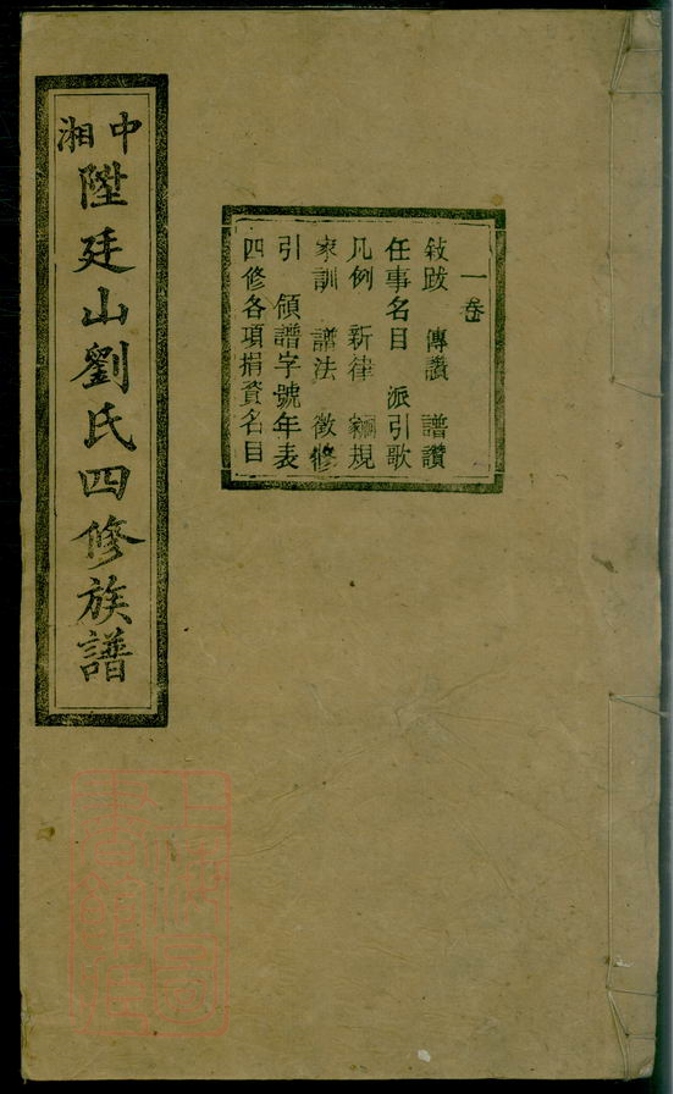 中湘陞廷山劉氏四修族譜
一卷
敍跋 傳讚 譜讚
任事名目 派引歌
凡例 新律 家規
家訓 譜法 徵修
引 領譜字號年表
四修各項捐資名目
上海圖書館藏